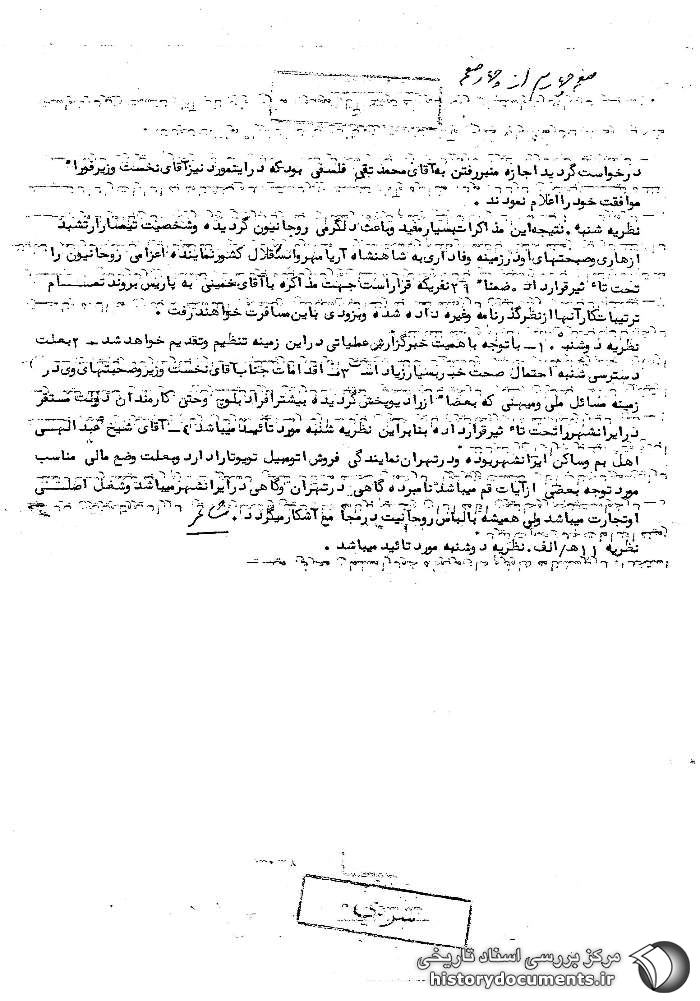 صفحه چهارم از چهار صفحه
درخواست گردید اجازه منبر رفتن به آقای محمد تقی فلسفی بود که در اینمورد نیز آقای نخست وزیر فورا"
موافقت خود را اعلام نمودند .
نظریه شنبه . نتیجه این مذاکرات بسیار مفید و باعث دلگرمی روحانیون گردیده و شخصیت تیمسار ارتشبد
ازهاری و صحبتهای او در زمینه وفاداری به شاهنشاه آریامهر و استقلال کشور نماینده اعزامی روحانیون را
تحت تاء ثیر قرار داد . ضمنا" نفریکه قرار است جهت مذاکره با آقای خمینی به پاریس بروند تمام
ترتیبات کار آنها از نظر گذرنامه و غیره داده شده و بزودی باین مسافرت خواهند رفت .
نظریه دوشنبه . ۱ــ با توجه باهمیت خبر گزارش عملیاتی در این زمینه تنظیم و تقدیم خواهد شد ــ ۲ بعلت
دسترسی شنبه احتمال صحت خبر بسیار زیاد است ــ ۳ اقدامات جناب آقای نخست وزیر و صحبتهای وی در
زمینه مسائل ملی و میهنی که بعضا" از رادیو پخش گردیده بیشتر افراد بلوچ و حتی کارمندان دولت مستقر
در ایرانشهر را تحت تاء ثیر قرار داده بنابراین نظریه شنبه مورد تائید میباشد ۴ــ آقای شیخ عبدالهی
اهل بم و ساکن ایرانشهر بوده و در تهران نمایندگی فروش اتومبیل تویوتا را دارد و بعلت وضع مالی مناسب
مورد توجه بعضی از آیات قم میباشد نامبرده گاهی در تهران و گاهی در ایرانشهر میباشد و شغل اصلی
او تجارت میباشد ولی همیشه با لباس روحانیت در مجامع آشکار میگردد .
نظریه ۱۱ هـ/الف . نظریه دوشنبه مورد تائید میباشد .
سری
مرکز بررسی اسناد تاریخی
historydocuments.ir